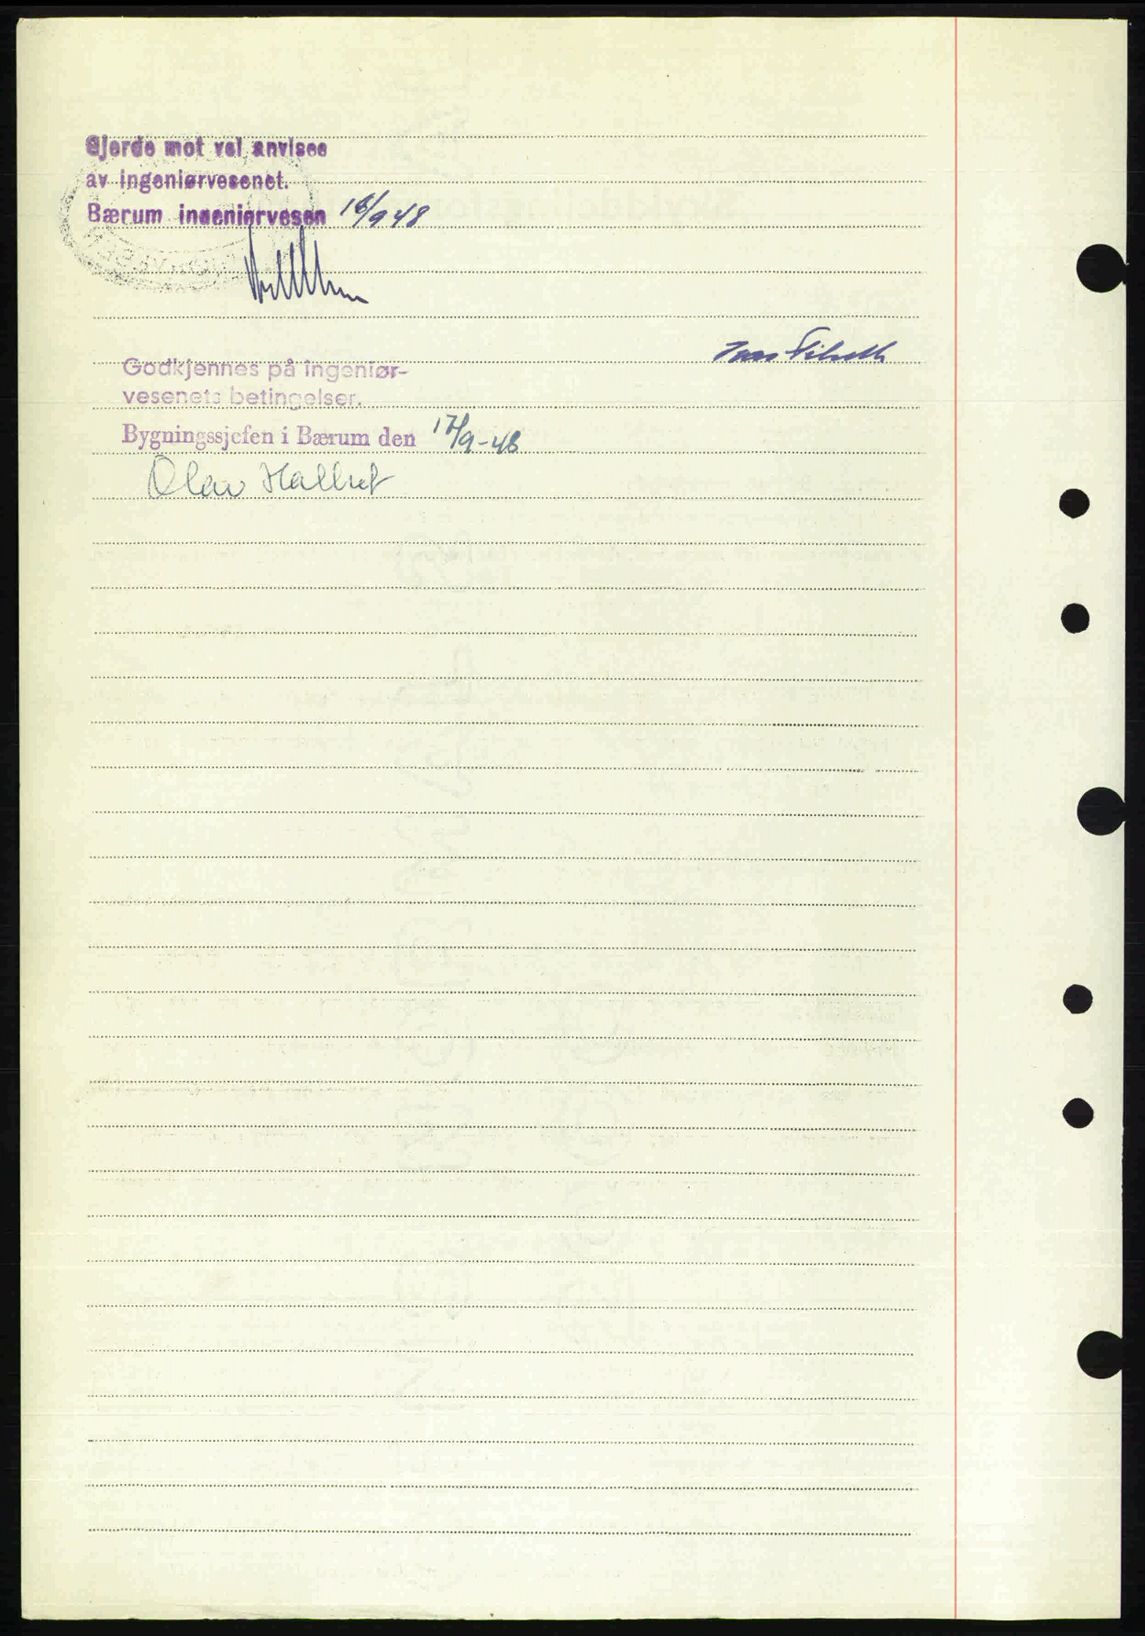 Gjerde mot vei anvises
av ingeniørvesenet.
Bærum ingeniørvesen 16/9 48
Godkjennes på ingeniør-
vesenets betingelser.
Bygningssjefen i Bærum den 17/9-48
Olav